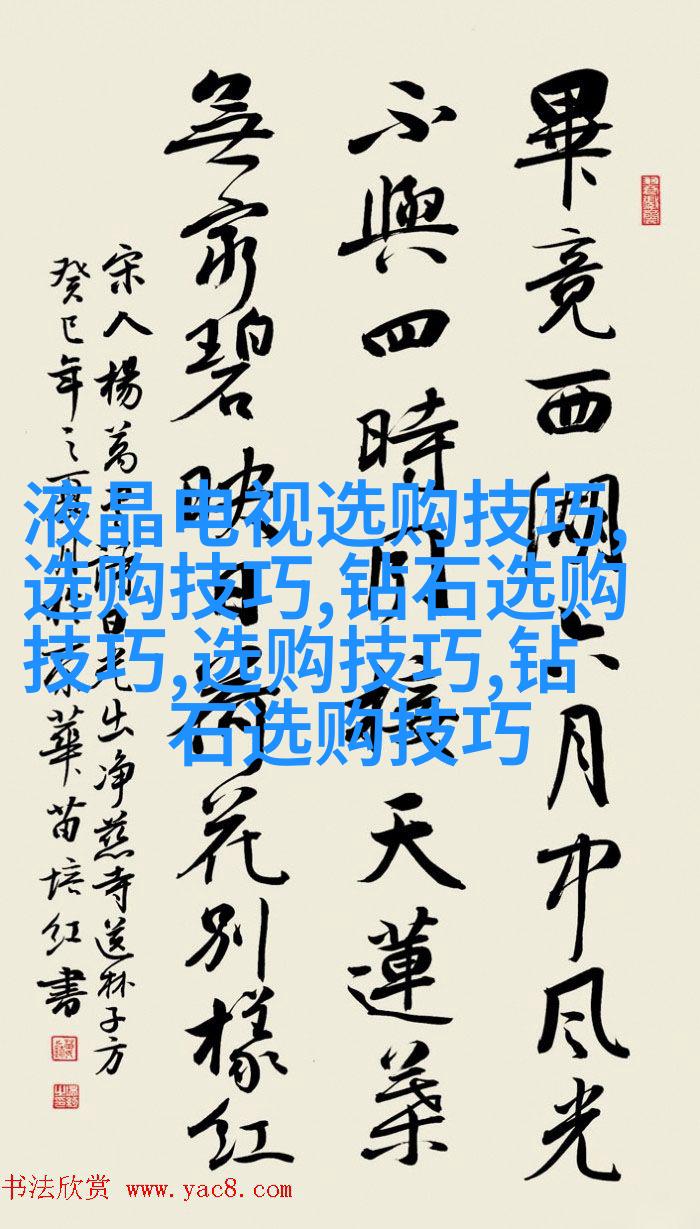 畢竟西湖六月中风光
不與四時同接天蓮葉
無窮碧映日荷花别樣红
宋人楊萬里詩曉出净慈寺送林子方
癸巳年之月於京華苗培红書
液晶电视选购技巧,
选购技巧,钻石选购
技巧,选购技巧,钻
石选购技巧
书法欣赏 www.yac8.com